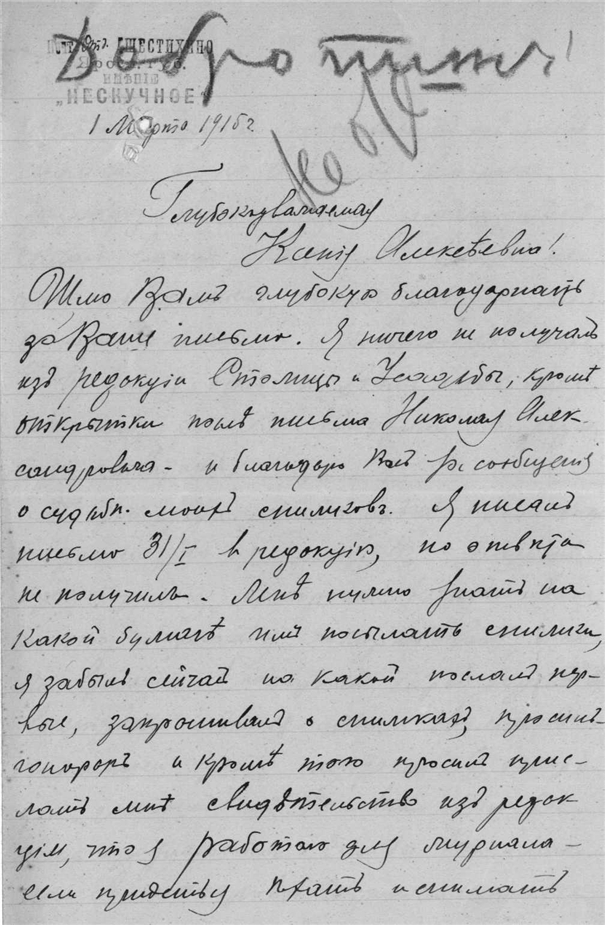 ШЕСТИХИНО
ИМѢНІЕ
„НЕСКУЧНОЕ“
1 Марта 1915 г
Глубокоуважаемая
Ксенія Алексѣевна!
Шлю Вамъ глубокую благодарность
за Ваше письмо. Я ничего не получалъ
изъ редакціи Столицы и Усадьбы, кромѣ
открытки послѣ письма Николая Алек-
сандровича - и благодарю Васъ за сообщенія
о судьбѣ моихъ снимковъ. Я писалъ
письмо 31/I в редакцію, но отвѣта
не получилъ. Мнѣ нужно знать на
какой бумагѣ имъ посылать снимки,
я забылъ сейчасъ на какой послалъ пер-
вые, запрашивалъ о снимкахъ, просилъ
гонораръ и кромѣ того просилъ прис-
лать мнѣ свидѣтельство изъ редак
ціи, что я работаю для журнала -
если придется ѣхать и снимать